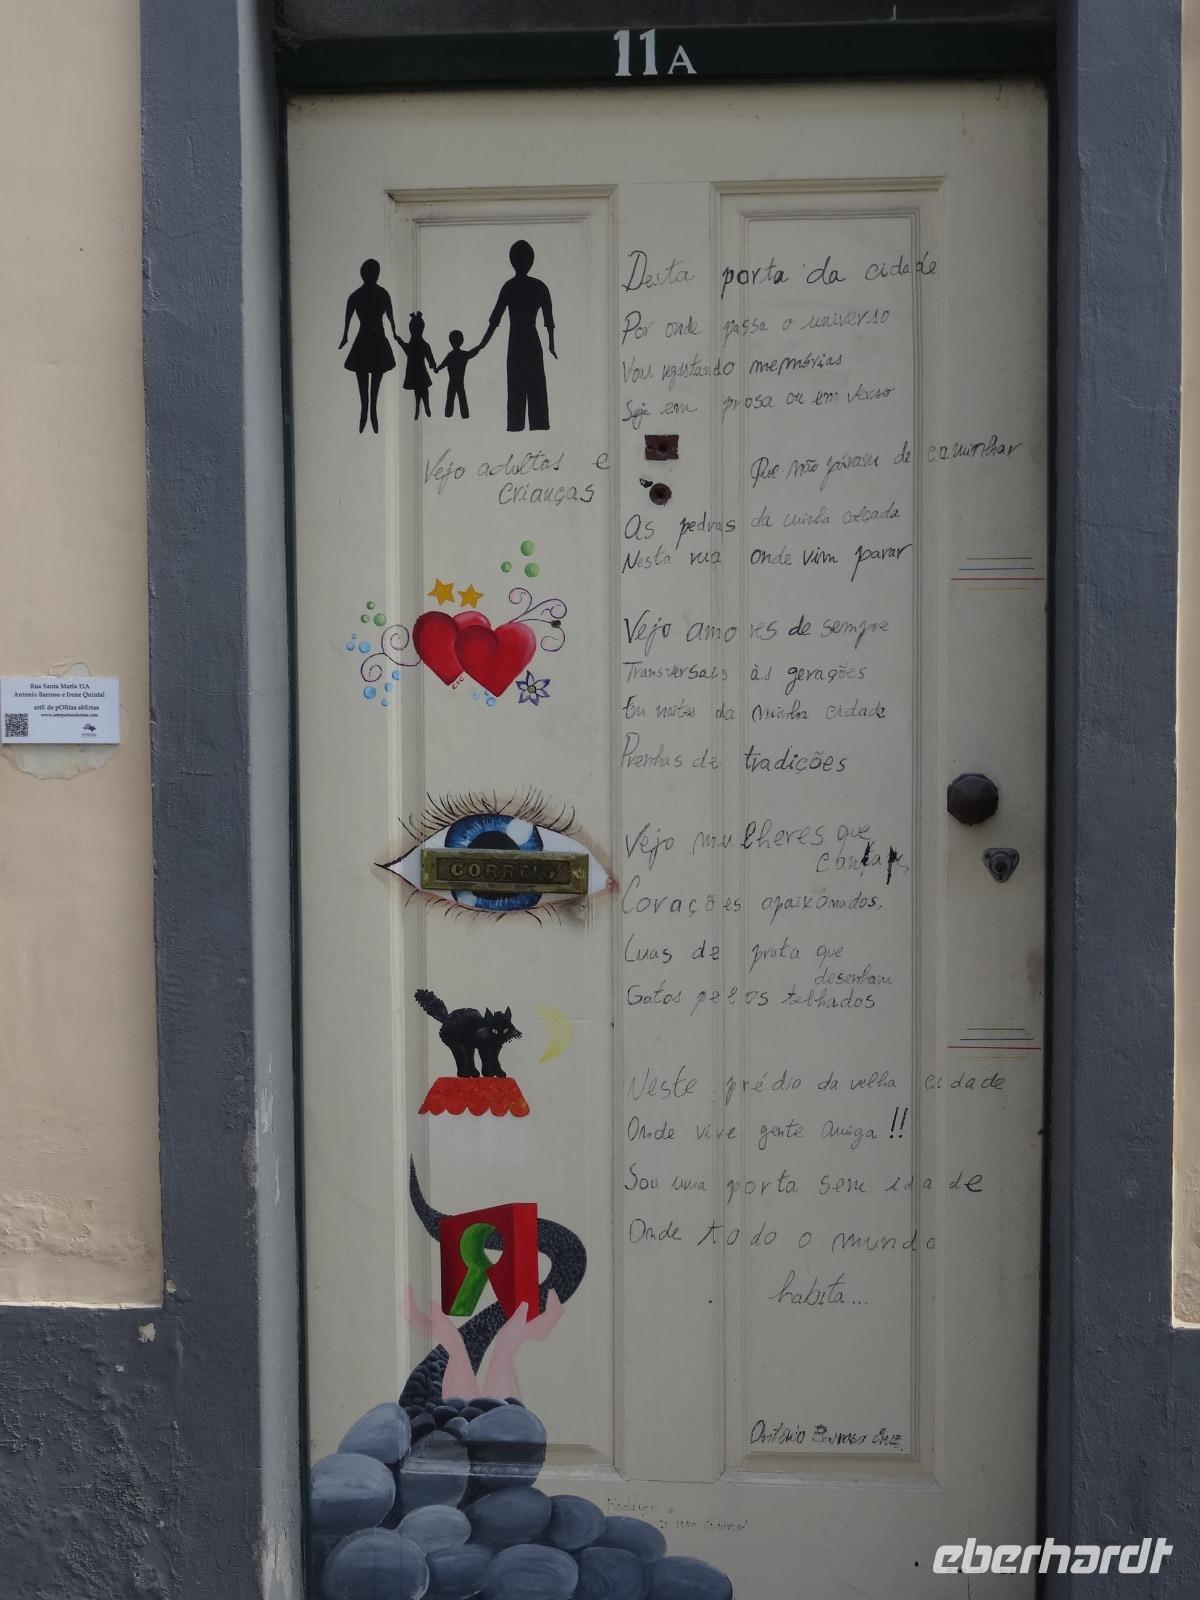 11A
Desta porta da cidade
Por onde passa o universo
Vou registando memórias
Seja em prosa ou em verso
Vejo adultos e
crianças
Que não páram de caminhar
As pedras da minha calçada
Nesta rua onde vim parar
Vejo amores de sempre
Transversais às gerações
Em noites da minha cidade
Prenhas de tradições
CORREIO
Vejo mulheres que
cantam,
Corações apaixonados,
Luas de prata que
desenham
Gatos pelos telhados
Neste prédio da velha cidade
Onde vive gente amiga!!
Sou uma porta sem idade
Onde todo o mundo
habita...
António Barroso Cruz
Rua Santa Maria 11A
Antonio Barroso e Irene Quintal
artE de pORtas abErtas
www.arteportasabertas.com
eberhardt